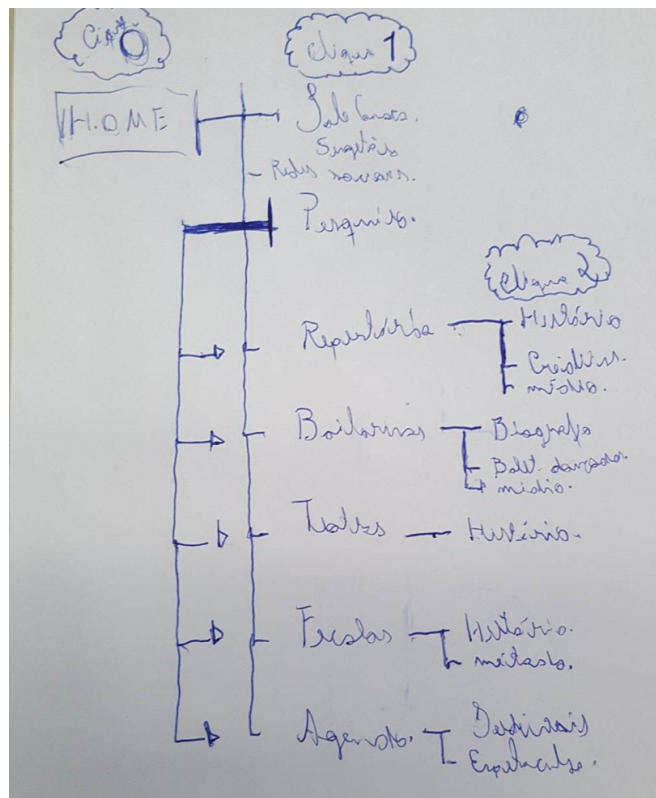 Clique 0
Clique 1
HOME
Fale Conosco.
Sugestão
Redes sociais.
Pesquisa.
Clique 2
Repertórios
História
Créditos.
mídia.
Bailarinos
Biografia
Balet. dançados.
mídia.
Teatros
História.
Escolas
História.
método.
Agenda.
Festivais
Espetáculo.